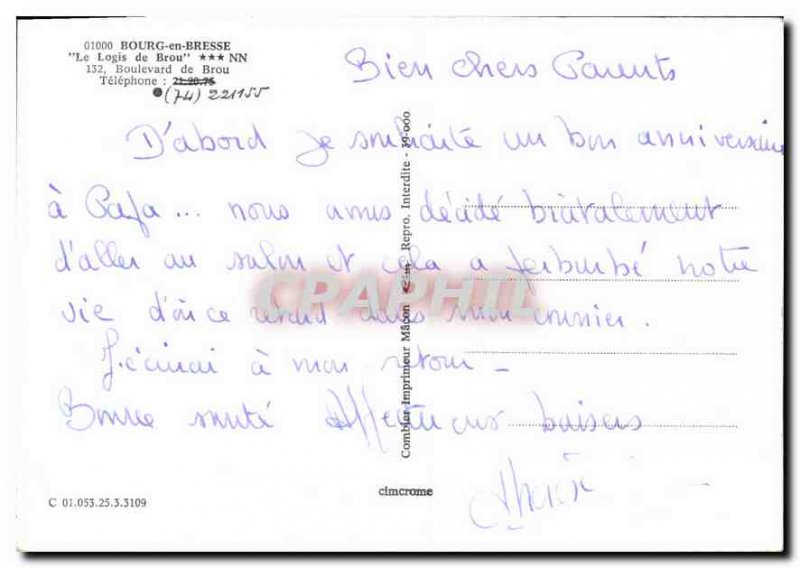 01000 BOURG-en-BRESSE
"Le Logis de Brou" ★★★ NN
132, Boulevard de Brou
Téléphone : 21.20.75
(74) 221155
Bien chers Parents
D'abord je souhaite un bon anniversaire
à Papa... nous avons décidé brutalement
d'aller au salon et cela a perturbé notre
vie d'où ce retard dans mon courrier.
J'écrirai à mon retour -
Bonne santé Affectueux baisers
Combier Imprimeur Mâcon Repro. Interdite - 39-000
CPARPHIL
cimcrome
C 01.053.25.3.3109